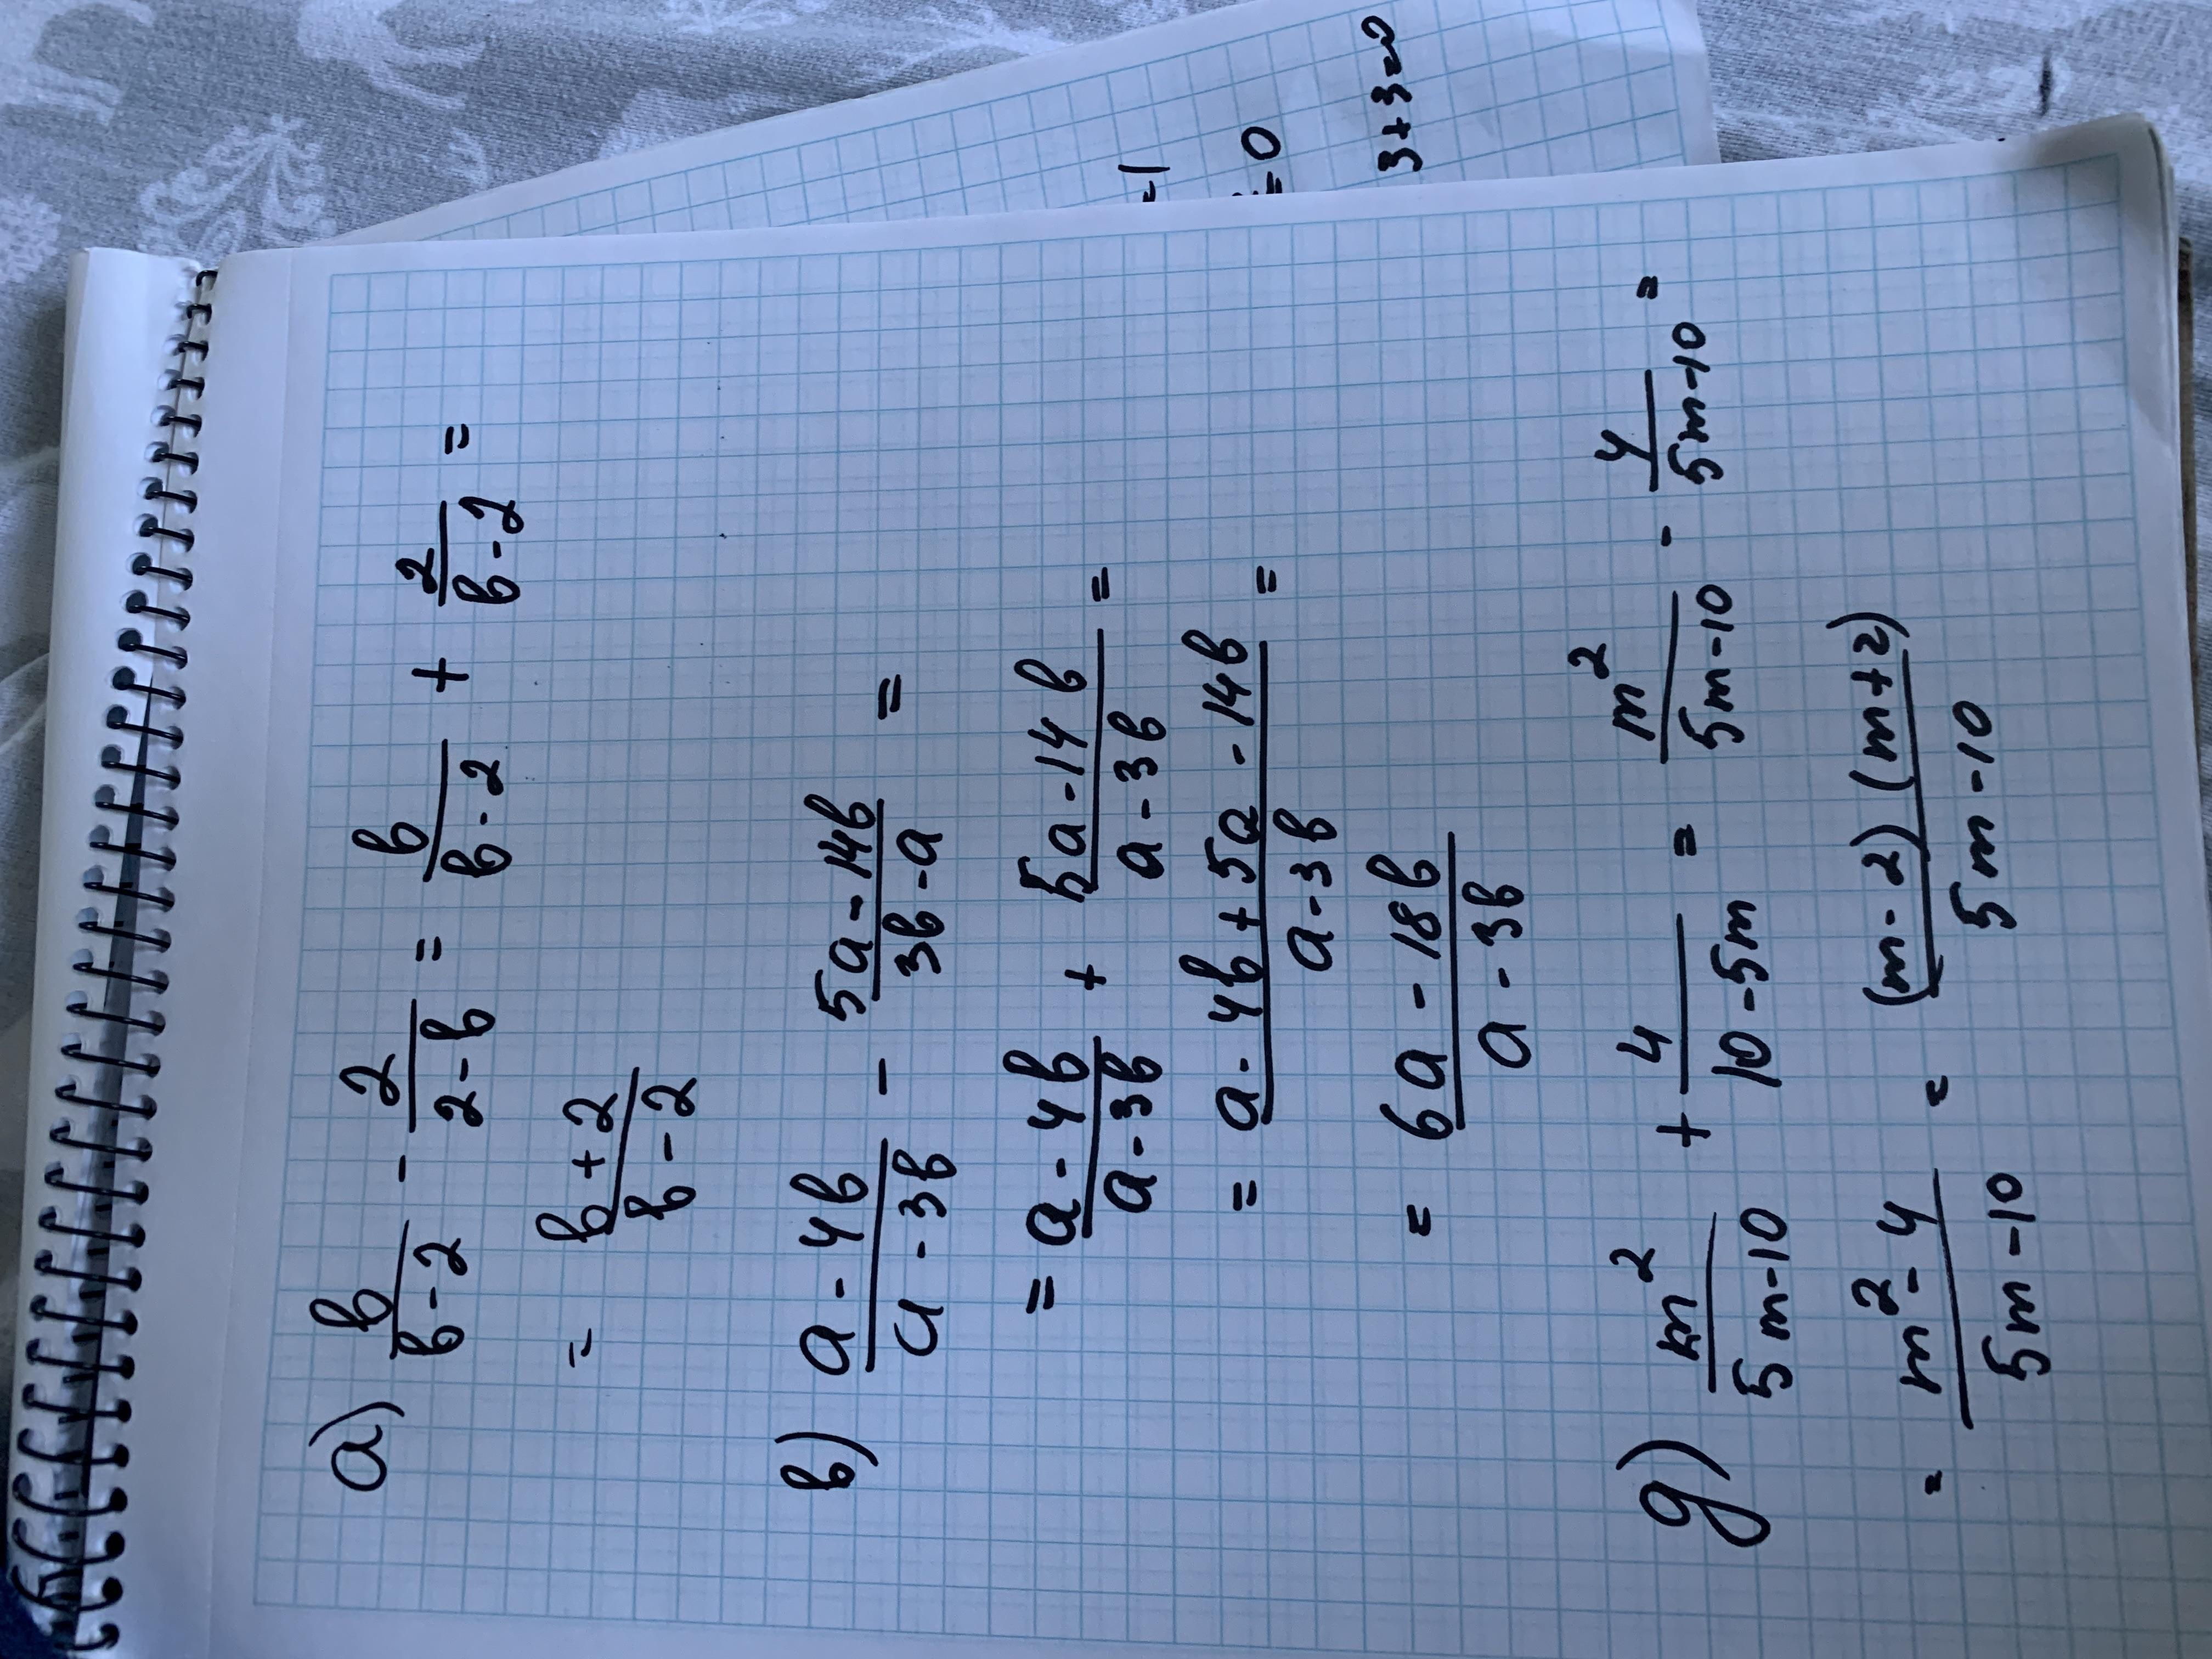 а) b/(b-2) - 2/(2-b) = b/(b-2) + 2/(b-2) =
= (b+2)/(b-2)
в) (a-4b)/(a-3b) - (5a-14b)/(3b-a) =
= (a-4b)/(a-3b) + (5a-14b)/(a-3b) =
= (a-4b+5a-14b)/(a-3b) =
= (6a-18b)/(a-3b)
д) m²/(5m-10) + 4/(10-5m) = m²/(5m-10) - 4/(5m-10) =
= (m²-4)/(5m-10) = (m-2)(m+2)/(5m-10)
=1
=0
3+3=